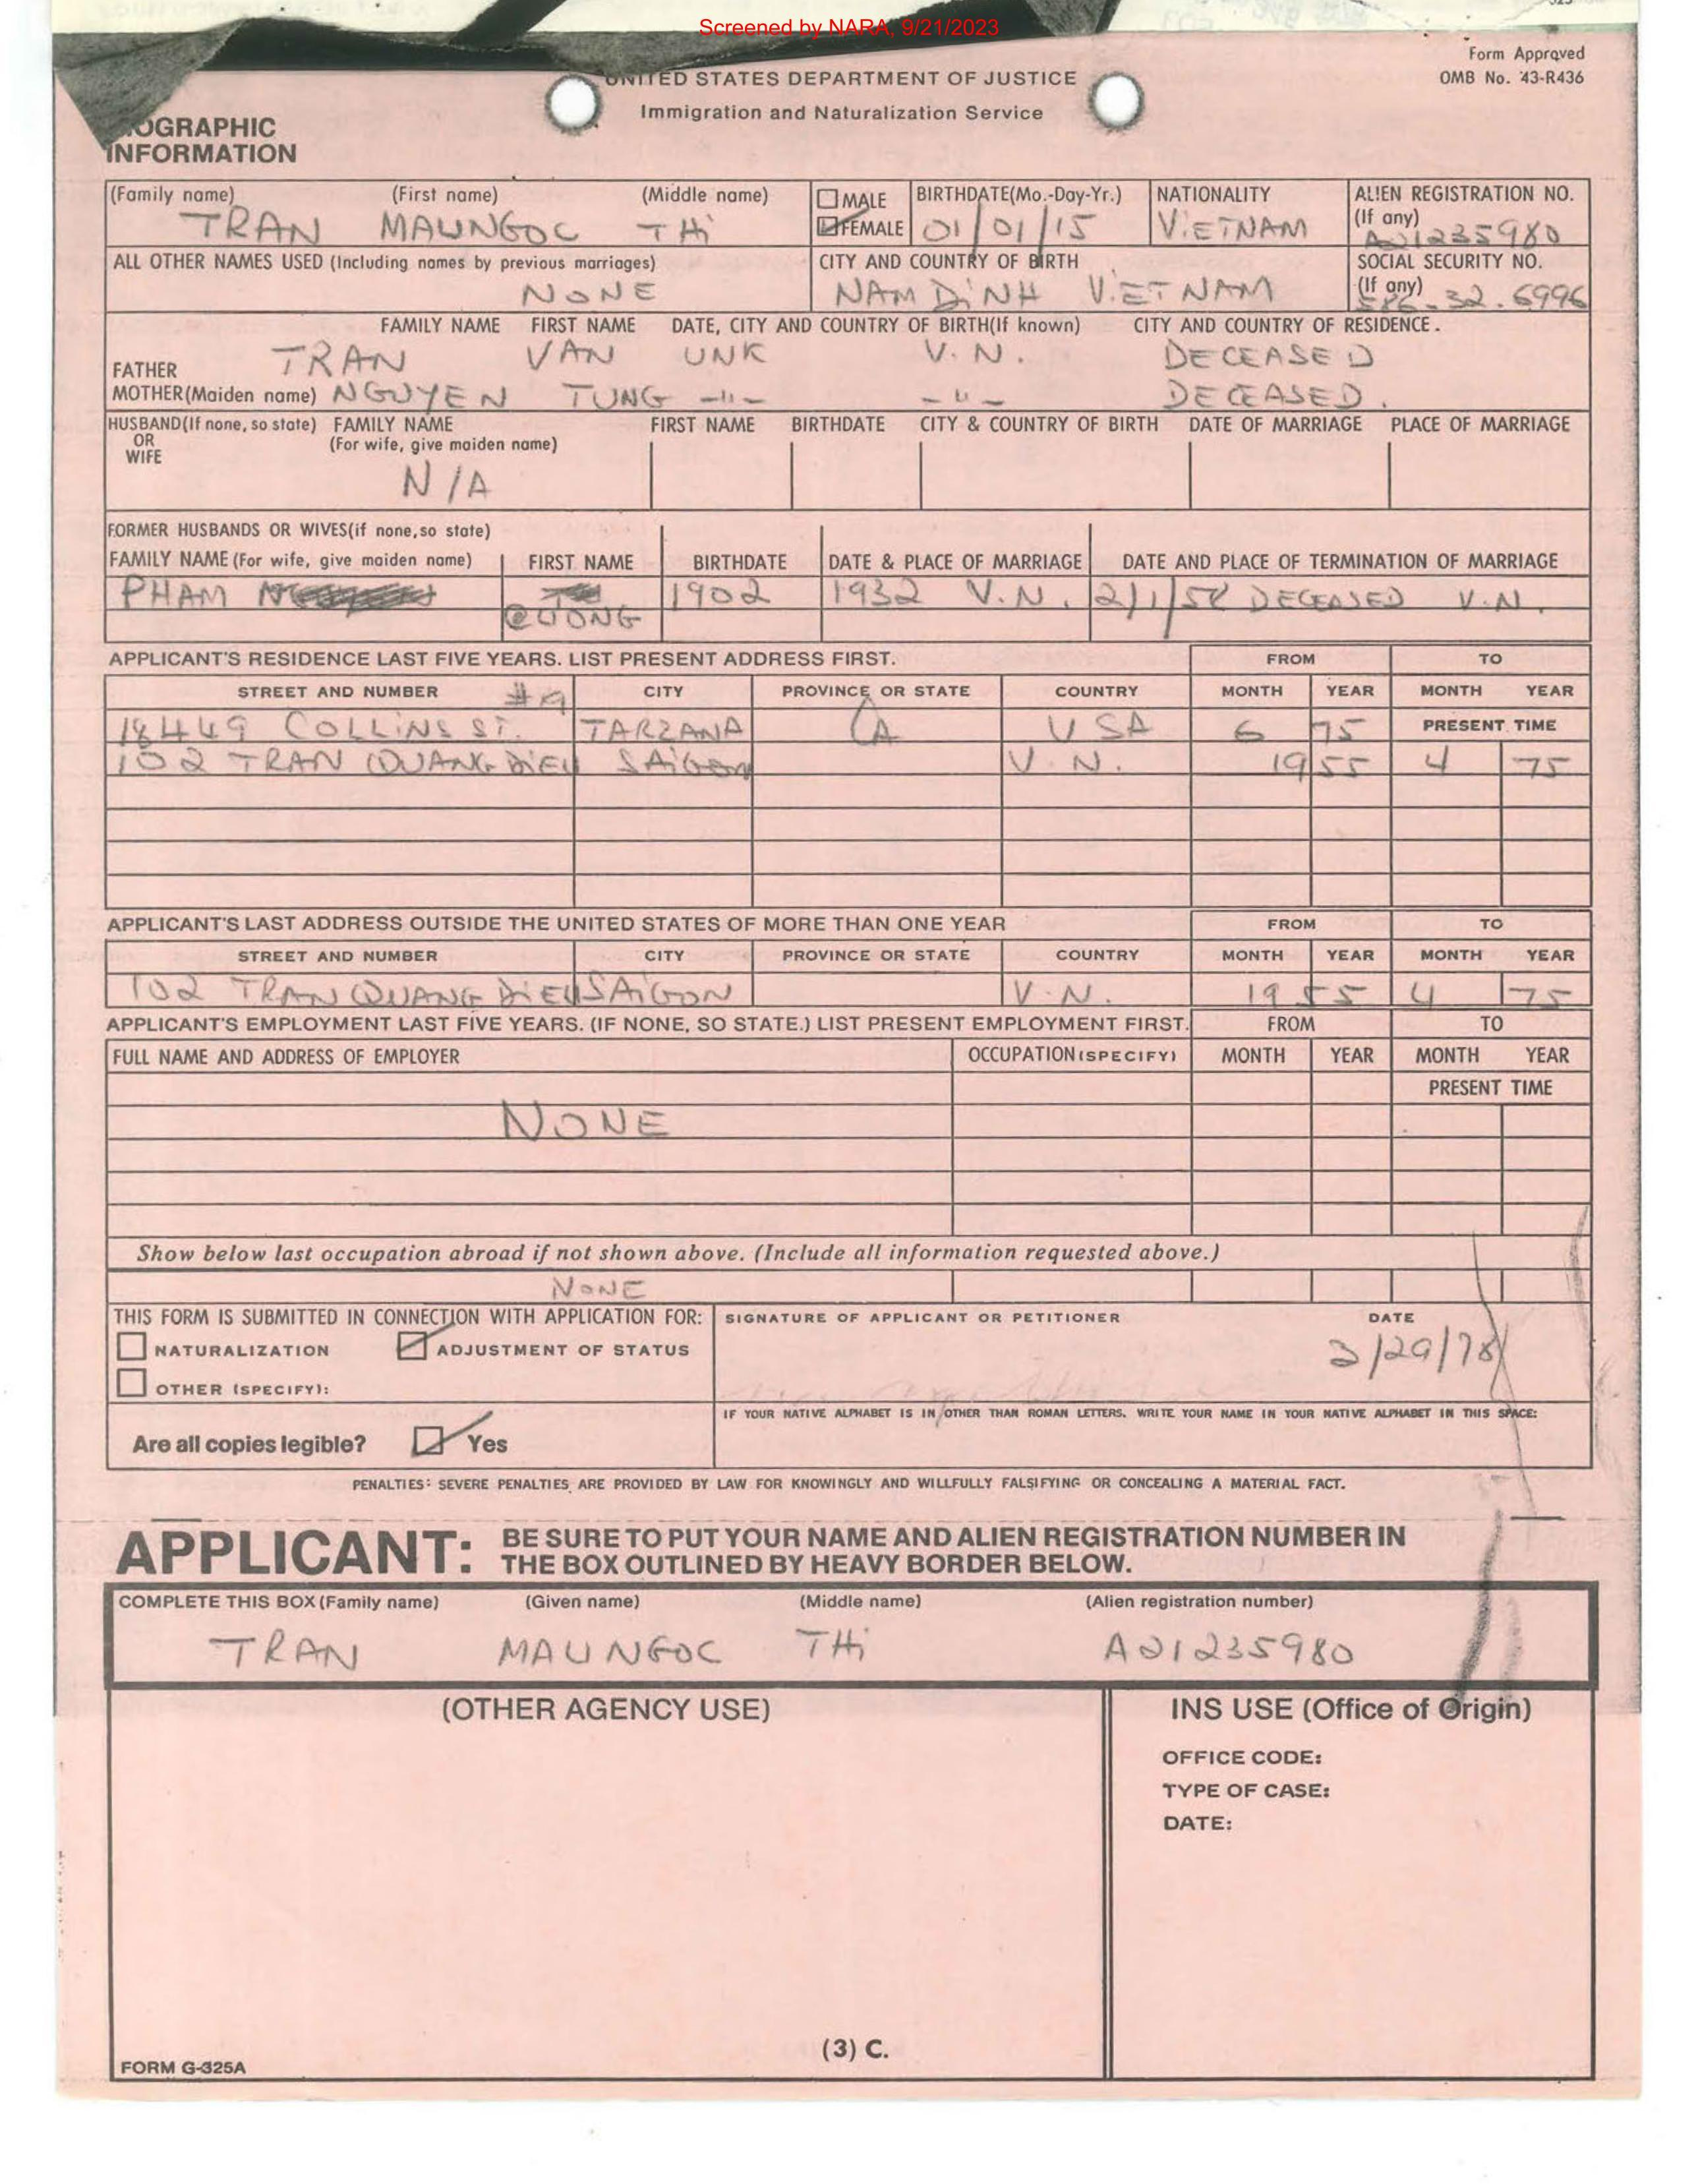 Screened by NARA, 9/21/2023
Form Approved
OMB No. 43-R436
UNITED STATES DEPARTMENT OF JUSTICE
Immigration and Naturalization Service
OGRAPHIC
INFORMATION
(Family name) (First name) (Middle name) MALE BIRTHDATE(Mo.-Day-Yr.) NATIONALITY ALIEN REGISTRATION NO.
(If any)
TRAN MAUNGOC THi FEMALE 01/01/15 ViETNAM A21235980
ALL OTHER NAMES USED (Including names by previous marriages) CITY AND COUNTRY OF BIRTH SOCIAL SECURITY NO.
(If any)
NONE NAM DiNH ViETNAM 586-32.6996
FAMILY NAME FIRST NAME DATE, CITY AND COUNTRY OF BIRTH(If known) CITY AND COUNTRY OF RESIDENCE.
FATHER TRAN VAN UNK V.N. DECEASED
MOTHER(Maiden name) NGUYEN TUNG -"- -"- DECEASED.
HUSBAND(If none, so state) FAMILY NAME FIRST NAME BIRTHDATE CITY & COUNTRY OF BIRTH DATE OF MARRIAGE PLACE OF MARRIAGE
OR (For wife, give maiden name)
WIFE
N/A
FORMER HUSBANDS OR WIVES(if none,so state)
FAMILY NAME (For wife, give maiden name) FIRST NAME BIRTHDATE DATE & PLACE OF MARRIAGE DATE AND PLACE OF TERMINATION OF MARRIAGE
PHAM 1902 1932 V.N. 2/1/58 DECEASED V.N.
CUONG
APPLICANT'S RESIDENCE LAST FIVE YEARS. LIST PRESENT ADDRESS FIRST. FROM TO
STREET AND NUMBER #9 CITY PROVINCE OR STATE COUNTRY MONTH YEAR MONTH YEAR
18449 COLLiNS ST. TARZANA CA USA 6 75 PRESENT TIME
102 TRAN QUANG DiEU SAiGON V.N. 1955 4 75
APPLICANT'S LAST ADDRESS OUTSIDE THE UNITED STATES OF MORE THAN ONE YEAR FROM TO
STREET AND NUMBER CITY PROVINCE OR STATE COUNTRY MONTH YEAR MONTH YEAR
102 TRAN QUANG DiEU SAiGON V.N. 1955 4 75
APPLICANT'S EMPLOYMENT LAST FIVE YEARS. (IF NONE, SO STATE.) LIST PRESENT EMPLOYMENT FIRST. FROM TO
FULL NAME AND ADDRESS OF EMPLOYER OCCUPATION(SPECIFY) MONTH YEAR MONTH YEAR
PRESENT TIME
NONE
Show below last occupation abroad if not shown above. (Include all information requested above.)
NONE
THIS FORM IS SUBMITTED IN CONNECTION WITH APPLICATION FOR: SIGNATURE OF APPLICANT OR PETITIONER DATE
NATURALIZATION ADJUSTMENT OF STATUS 3/29/78
OTHER (SPECIFY):
IF YOUR NATIVE ALPHABET IS IN OTHER THAN ROMAN LETTERS, WRITE YOUR NAME IN YOUR NATIVE ALPHABET IN THIS SPACE:
Are all copies legible? Yes
PENALTIES: SEVERE PENALTIES ARE PROVIDED BY LAW FOR KNOWINGLY AND WILLFULLY FALSIFYING OR CONCEALING A MATERIAL FACT.
APPLICANT: BE SURE TO PUT YOUR NAME AND ALIEN REGISTRATION NUMBER IN
THE BOX OUTLINED BY HEAVY BORDER BELOW.
COMPLETE THIS BOX (Family name) (Given name) (Middle name) (Alien registration number)
TRAN MAUNGOC THi A21235980
(OTHER AGENCY USE) INS USE (Office of Origin)
OFFICE CODE:
TYPE OF CASE:
DATE:
(3) C.
FORM G-325A